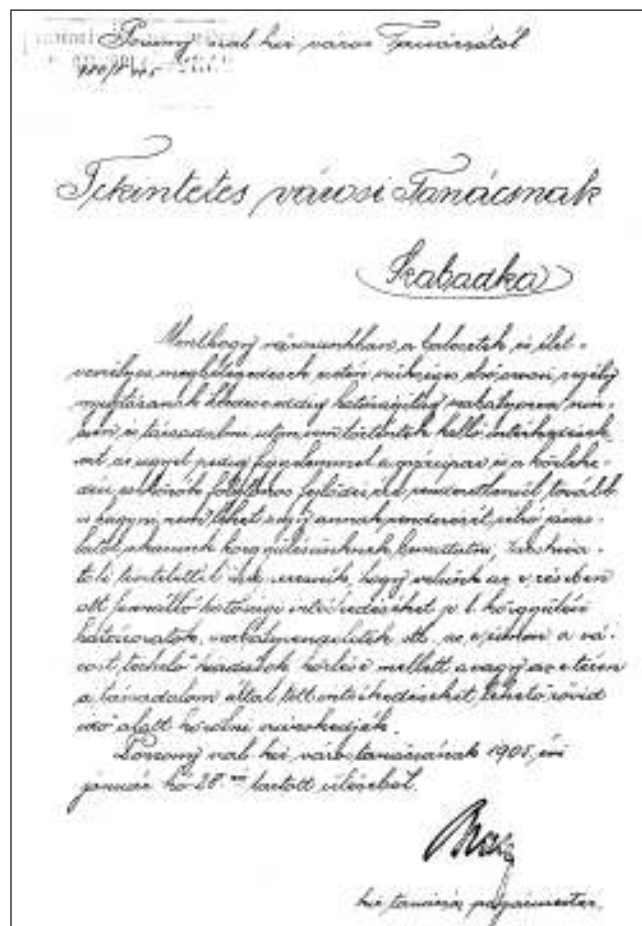 Pozsony szab. kir. város Tanácsától
Tekintetes városi Tanácsnak
Szabadka
Minthogy városunkban a balesetek és élet-
veszélyes megbetegedések esetén szükséges első orvosi segély
nyujtásának eddig hatóságilag szabályozva nin-
csen és társadalmi uton sem történtek kellő intézkedések
ezt az ügyet pedig figyelemmel a gyáripar és a közleke-
dési eszközök folytonos fejlődésére rendezetlenül tovább
is hagyni nem lehet s így annak rendezését célzó javas-
latot akarunk közgyűlésünknek bemutatni,
tisztelettel kérjük, hogy velünk az e részben
ott fennálló hatósági intézkedéseket p. l. közgyűlési
határozatok, szabályrendeletek stb. a vá-
rost terhelő kiadások közlése mellett avagy az e téren
a társadalom által tett intézkedéseket lehető rövid
idő alatt közölni sziveskedjék.
Pozsony szab. kir. város tanácsának 1905. évi
január hó 28. án tartott üléséből.
kir. tanácsos, polgármester.